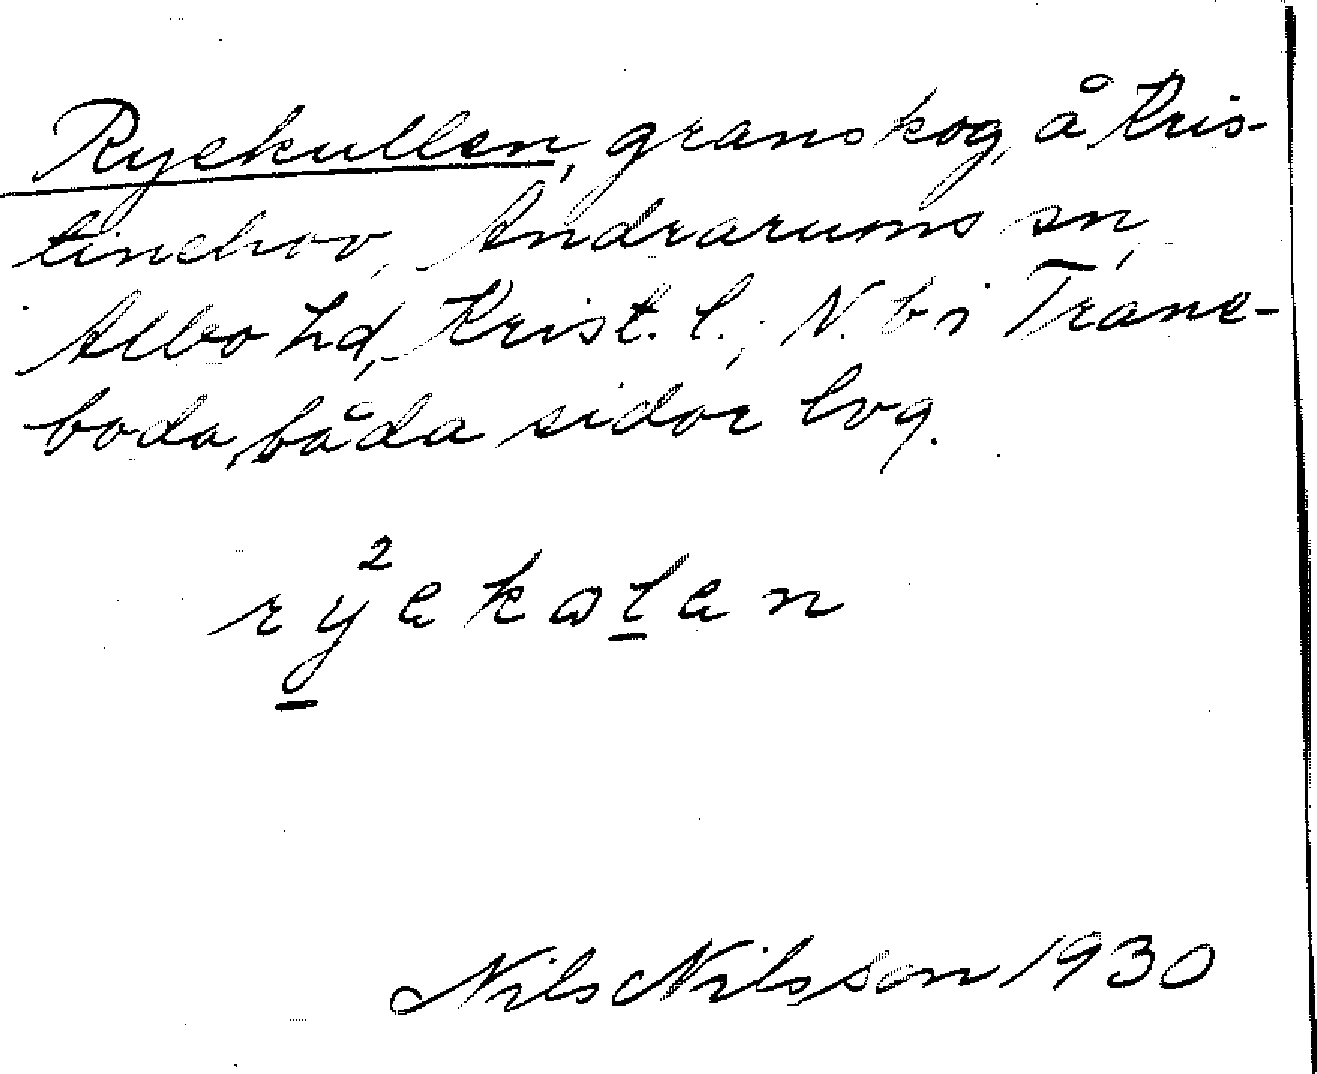 Ryekullen, granskog, å Kris-
tinehov, Andrarums sn,
Albo hd, Krist. l., N. bi Trane-
boda, båda sidor lvg.
2
ryekolen
Nils Nilsson 1930